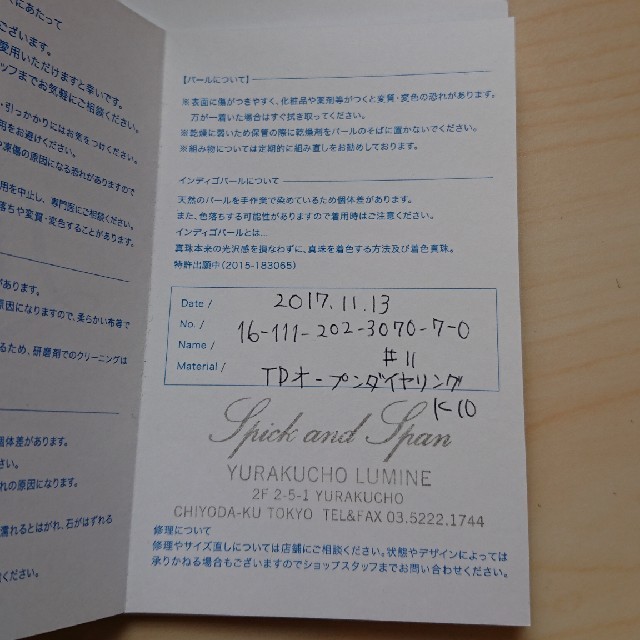 にあたって
ございます。
愛用いただけますと幸いです。
タッフまでお気軽にご相談ください。
・引っかかりにはお気をつけください。
用をお避けください。
や凍傷の原因になる恐れがありますので
用を中止し、専門医にご相談ください。
落ちや変質・変色することがあります。
があります。
原因になりますので、柔らかい布等で
るため、研磨剤でのクリーニングは
個体差があります。
さい。
れの原因になります。
濡れるとはがれ、石がはずれる
ください。
【パールについて】
※表面に傷がつきやすく、化粧品や薬剤等がつくと変質・変色の恐れがあります。
万が一着いた場合はすぐ拭き取ってください。
※乾燥に弱いため保管の際に乾燥剤をパールのそばに置かないでください。
※組み物については定期的に組み直しをお勧めしております。
インディゴパールについて
天然のパールを手作業で染めているため個体差があります。
また、色落ちする可能性がありますので着用時はご注意ください。
インディゴパールとは…
真珠本来の光沢感を損なわずに、真珠を着色する方法及び着色真珠。
特許出願中(2015-183065)
Date / 2017.11.13
No. / 16-111-202-3070-7-0
Name / #11
Material / TDオープンダイヤリング
K10
Spick and Span
YURAKUCHO LUMINE
2F 2-5-1 YURAKUCHO
CHIYODA-KU TOKYO TEL&FAX 03.5222.1744
修理について
修理やサイズ直しについては店舗にご相談ください。状態やデザインによっては
承りかねる場合もございますのでショップスタッフまでお問い合わせください。